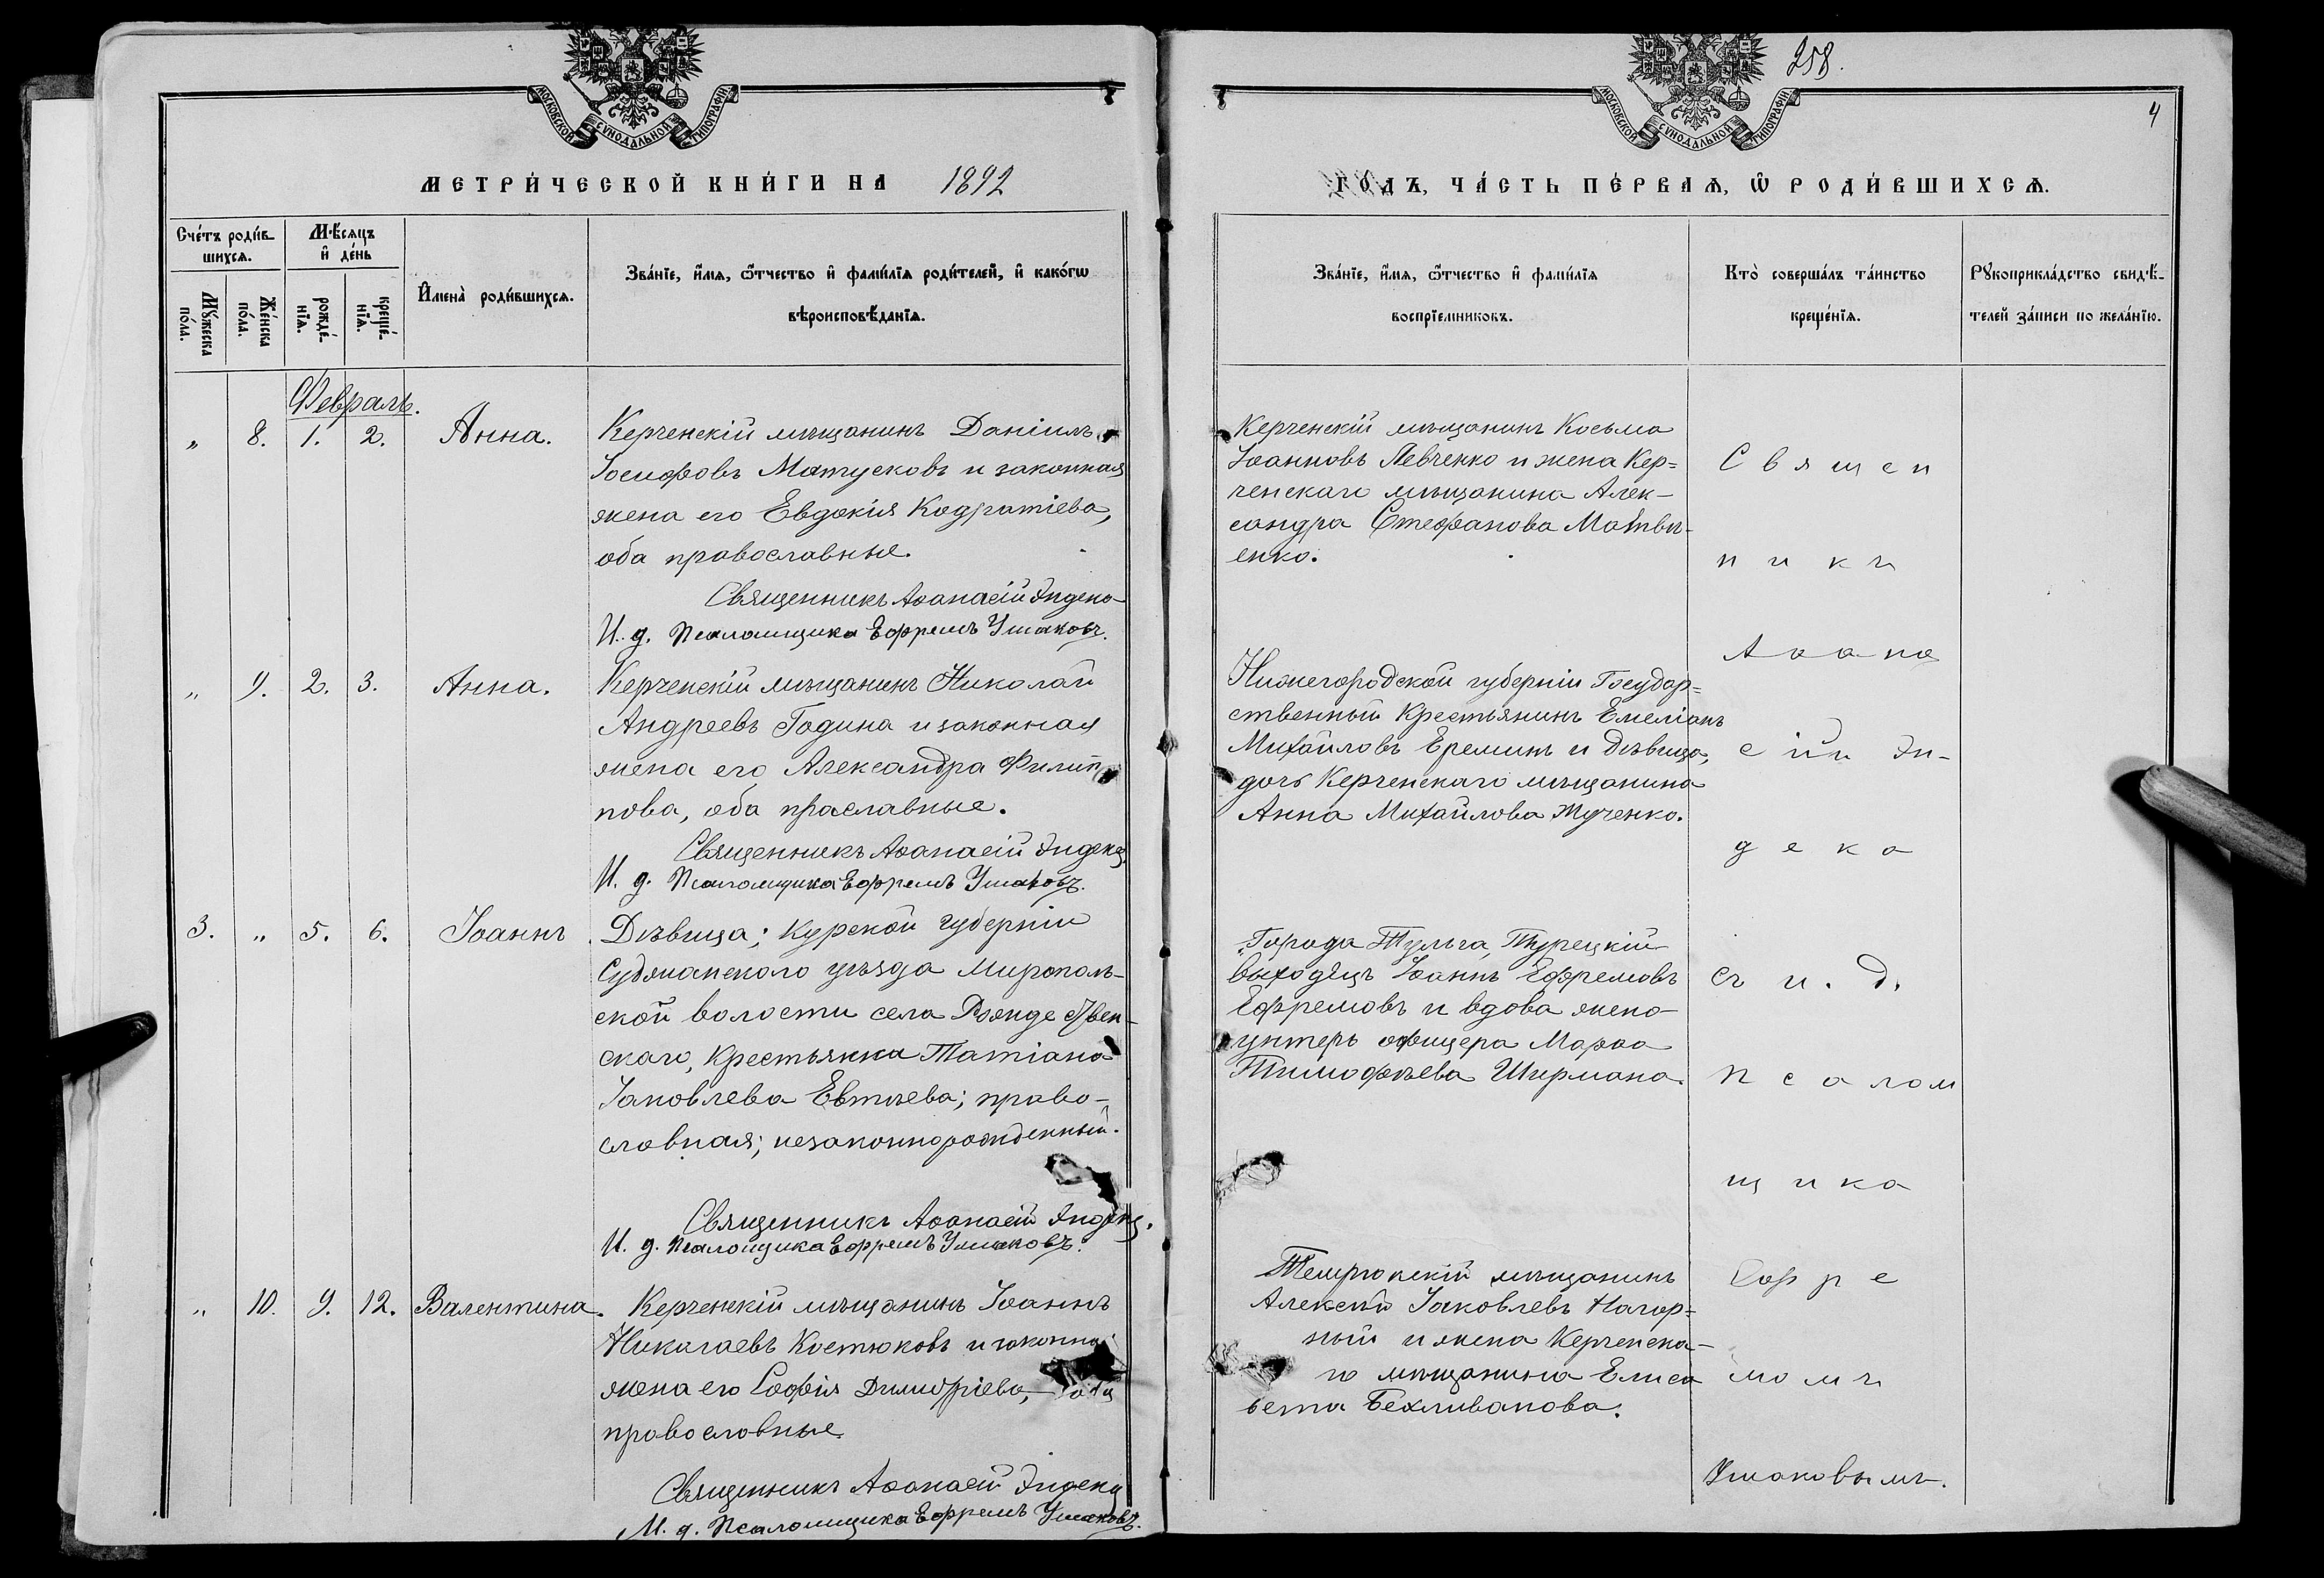 258.
4
МОСКОВСКОЙ СѴНОДАЛЬНОЙ ТИПОГРАФІИ
МОСКОВСКОЙ СѴНОДАЛЬНОЙ ТИПОГРАФІИ
МЕТРИ́ЧЕСКОЙ КНИ́ГИ НА 1892
ГО́ДЪ, ЧА́СТЬ ПЕ́РВАѦ, Ѡ РОДИ́ВШИХСѦ.
Сче́тъ роди́в-
шихсѧ.
Мѣ́сѧцъ
и҆ де́нь
Мꙋ́жеска
по́ла.
Же́нска
по́ла.
рожде́-
нїѧ.
креще́-
нїѧ.
И҆мена̀ роди́вшихсѧ.
Зва́нїе, и҆́мѧ, ѻ҆́тчество и҆ фами́лїѧ роди́телей, и҆ како́гѡ
вѣроисповѣ́данїѧ.
Зва́нїе, и҆́мѧ, ѻ҆́тчество и҆ фами́лїѧ
воспрїемниковъ.
Кто̀ соверша́лъ та́инство
креще́нїѧ.
Рꙋкоприкла́дство свидѣ́-
телей за́писи по жела́нїю.
Февраль.
„ 8. 1. 2. Анна.
Керченскій мѣщанинъ Даніилъ
Іосифовъ Матусковъ и законная
жена его Евдокія Кодратіева,
оба православные.
Священникъ Аѳанасій Индеко
И. д. Псаломщика Ефремъ Ушаковъ.
Керченскій мѣщанинъ Косьма
Іоанновъ Левченко и жена Кер=
ченскаго мѣщанина Алек-
сандра Стефанова Матвѣ-
енко.
„ 9. 2. 3. Анна.
Керченскій мѣщанинъ Николай
Андреевъ Година и законная
жена его Александра Филип
пова, оба праславные.
Священникъ Аѳанасій Индеко
И. д. Псаломщика Ефремъ Ушаковъ.
Нижегородской губерніи Государ=
ственный Крестьянинъ Емеліанъ
Михайловъ Ереминъ и дѣвица,
дочь Керченскаго мѣщанина
Анна Михайлова Жученко.
3. „ 5. 6. Іоаннъ
Дѣвица; Курской губерніи
Суджанскаго уѣзда Мирополь-
ской волости села Рождествен-
скаго, Крестьянка Татіана
Іаковлева Евтѣева; право-
славная; незаконнорожденный.
Священникъ Аѳанасій Индеко.
И. д. Псаломщика Ефремъ Ушаковъ.
Города Тульча, Турецкій
выходецъ Іоаннъ Ефремовъ
Ефремовъ и вдова жена
унтеръ офицера Марѳа
Тимофѣева Ширмана.
„ 10. 9. 12. Валентина.
Керченскій мѣщанинъ Іоаннъ
Николаевъ Костюковъ и законна
жена его Софія Димитріева, оба
православные.
Священникъ Аѳанасій Индеко
И. д. Псаломщика Ефремъ Ушаковъ.
Темрюкскій мѣщанинъ
Алексѣй Іаковлевъ Нагор=
ный и жена Керченска-
го мѣщанина Елиса
вета Бехливанова.
Священ
никъ
Аѳана
сій Ин-
деко
съ и. д.
Псалом
щика
Ефре
момъ
Ушаковымъ.